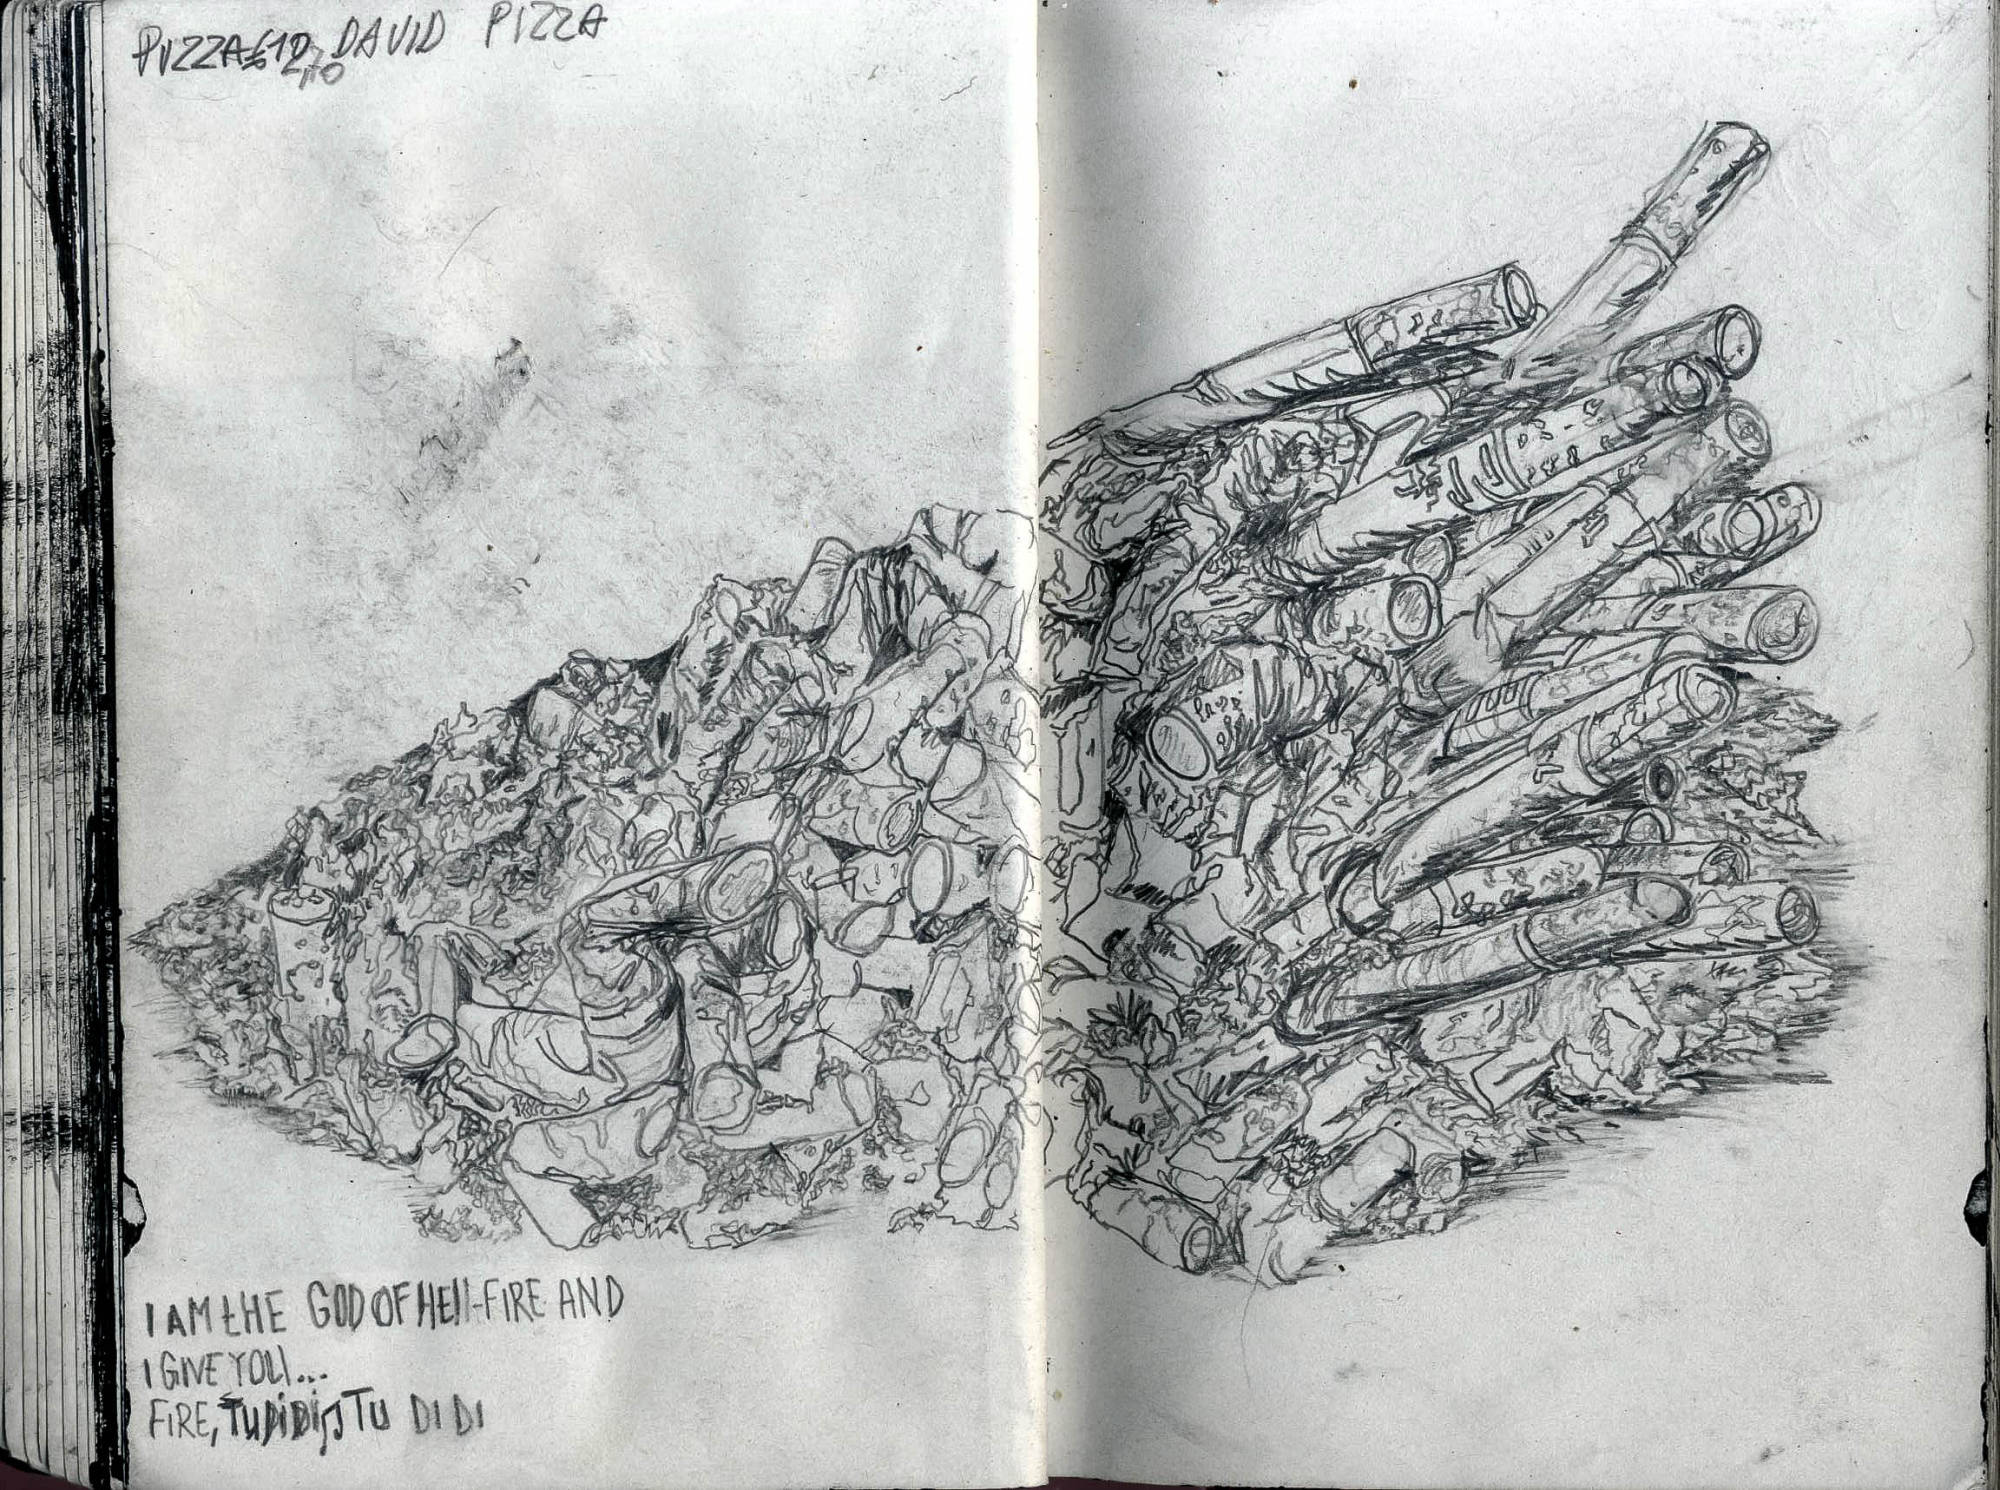 PIZZA DAVID PIZZA
I AM tHE GOD OF HEll-FIRE AND
I GIVE YOU...
FIRE, TUDiDi, TU DI DI